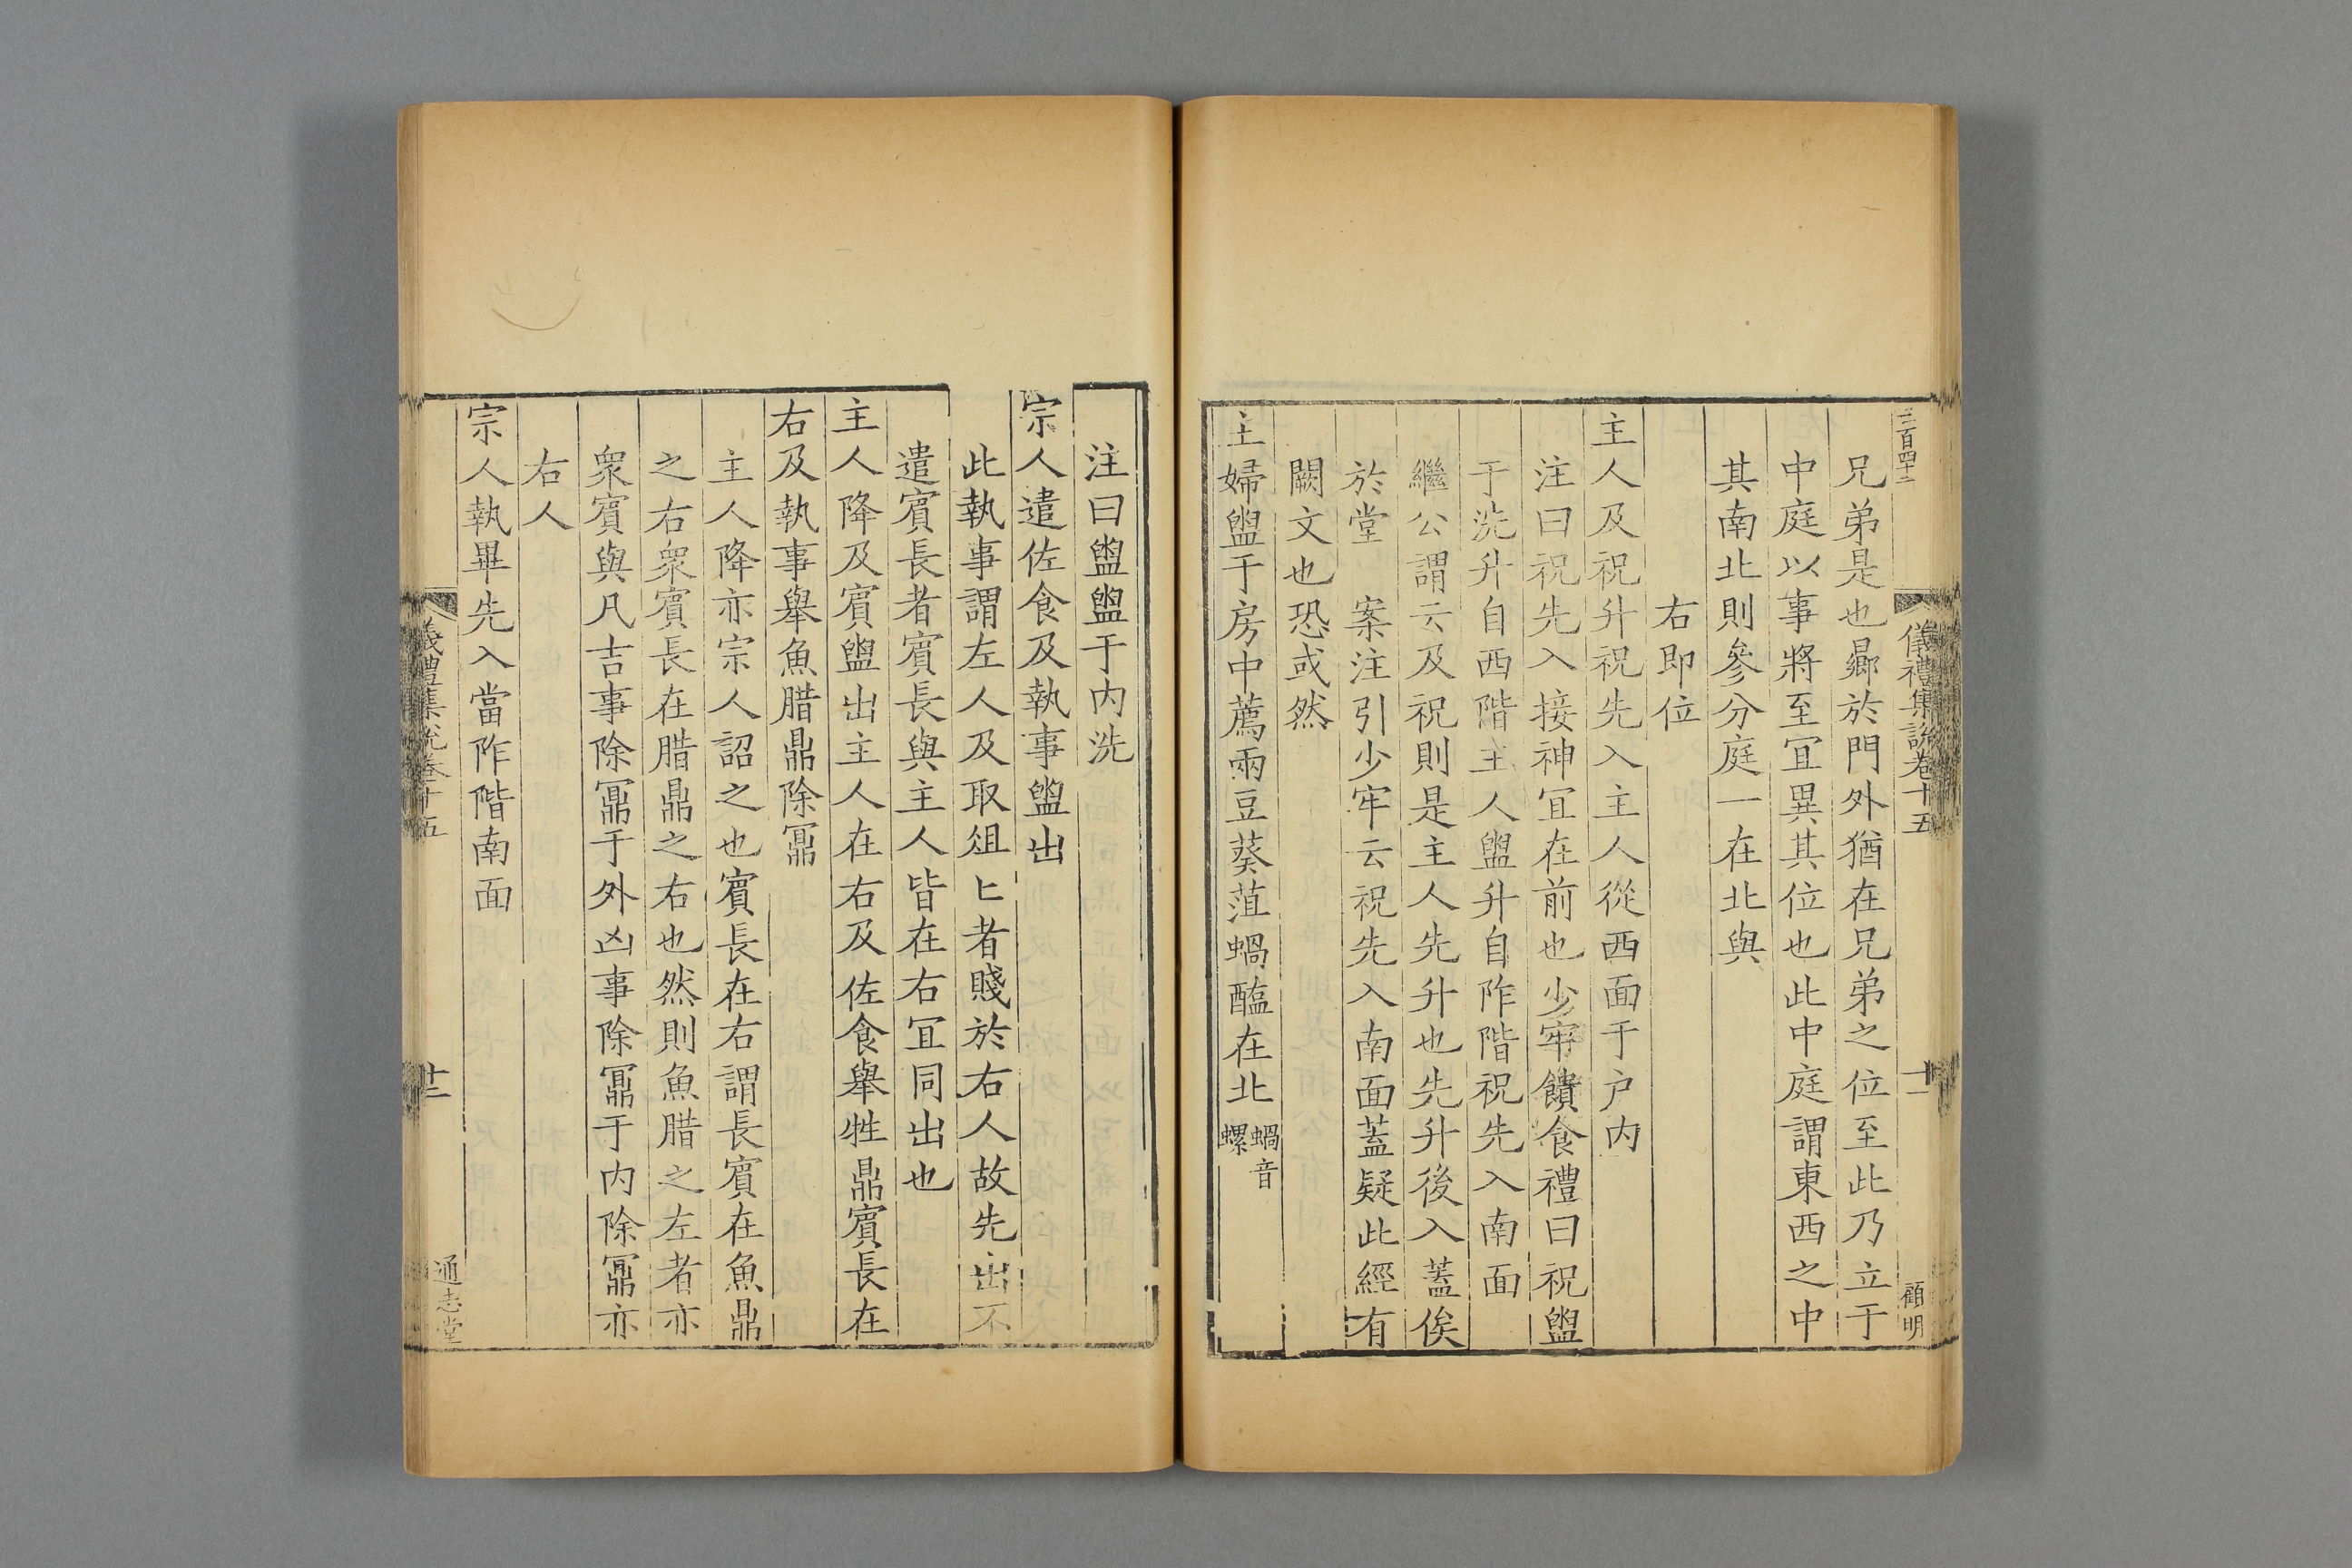 二百四十二
儀禮集說卷十五
十一
顧明
兄弟是也鄉於門外猶在兄弟之位至此乃立于
中庭以事將至宜異其位也此中庭謂東西之中
其南北則參分庭一在北與
右即位
主人及祝升祝先入主人從西面于户内
注曰祝先入接神宜在前也少牢饋食禮曰祝盥
于洗升自西階主人盥升自阼階祝先入南面
繼公謂云及祝則是主人先升也先升後入蓋俟
於堂 案注引少牢云祝先入南面蓋疑此經有
闕文也恐或然
主婦盥于房中薦兩豆葵菹蝸醢在北蝸音螺
注曰盥盥于内洗
宗人遣佐食及執事盥出
此執事謂左人及取俎匕者賤於右人故先出不
遣賓長者賓長與主人皆在右宜同出也
主人降及賓盥出主人在右及佐食舉牲鼎賓長在
右及執事舉魚腊鼎除鼏
主人降亦宗人詔之也賓長在右謂長賓在魚鼎
之右衆賓長在腊鼎之右也然則魚腊之左者亦
衆賓與凡吉事除鼏于外凶事除鼏于内除鼏亦
右人
宗人執畢先入當阼階南面
儀禮集說卷十五
十二
通志堂